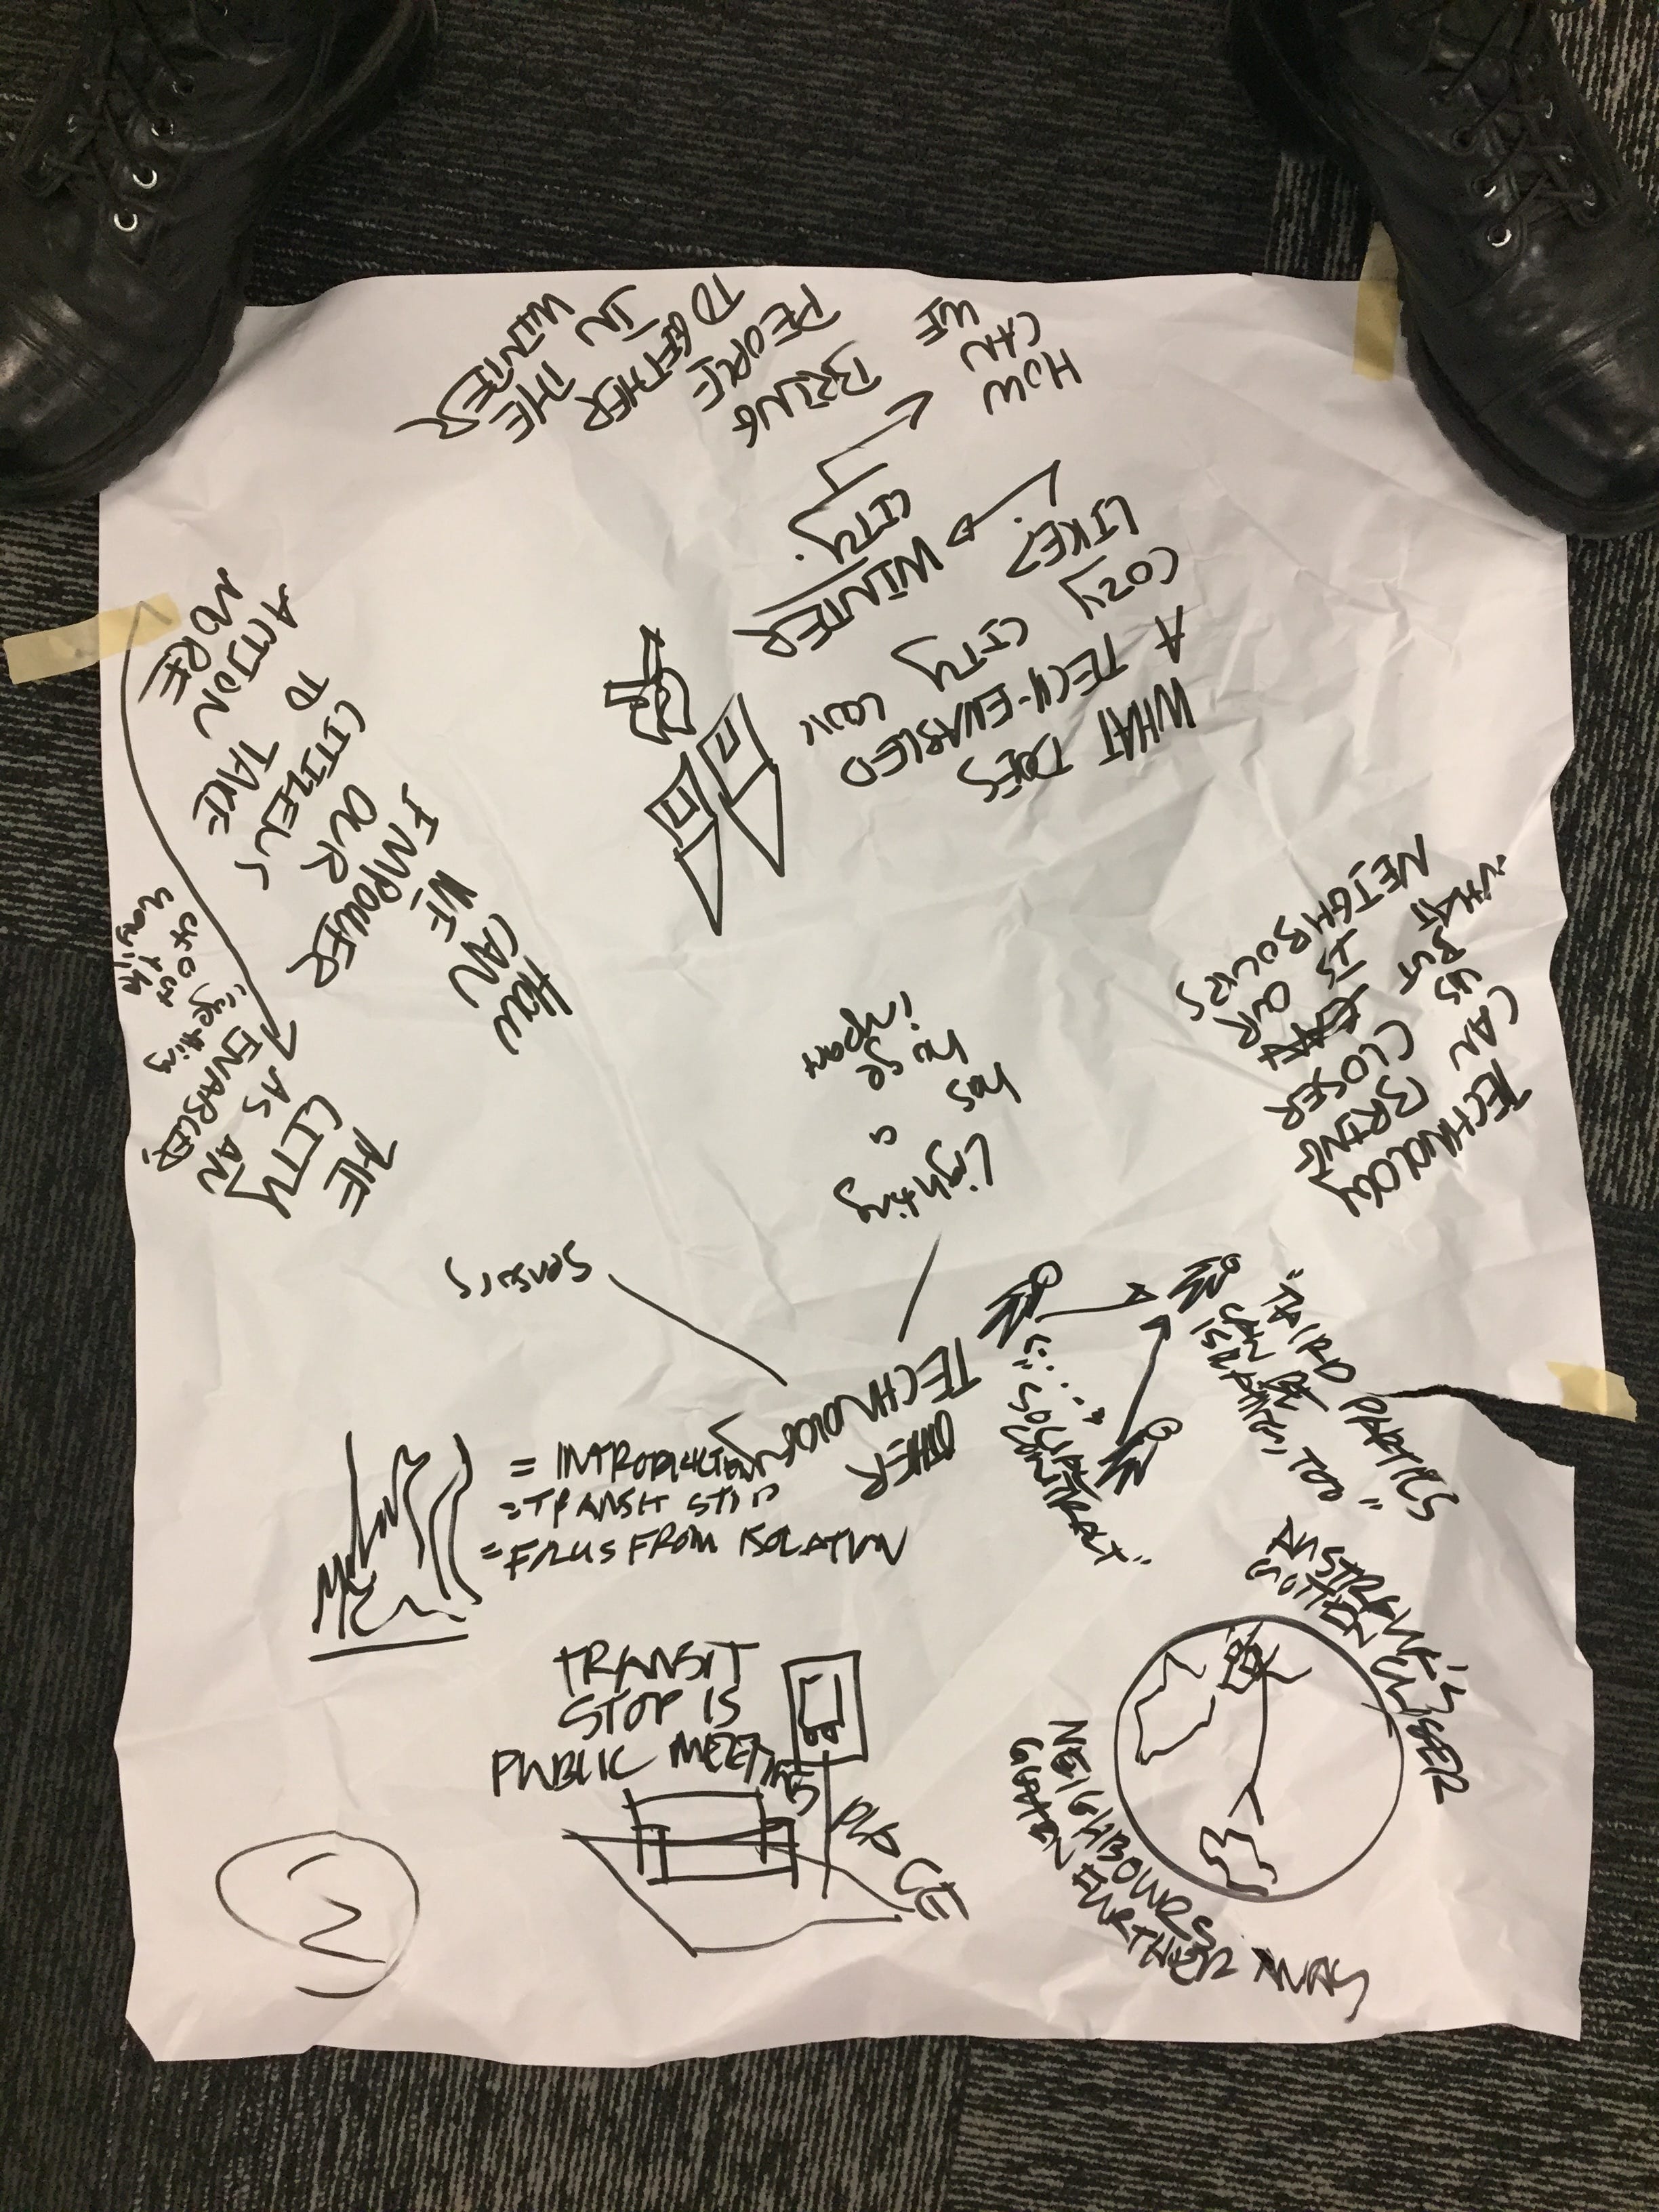 HOW
CAN
WE
BRING
PEOPLE
TOGETHER
IN
THE
WINTER
WHAT DOES
A TECH-ENABLED
COZY CITY LOOK
LIKE?
WINTER
CITY.
HOW
CAN
WE
EMPOWER
OUR
CITIZENS
TO TAKE
ACTION
MORE
THE
CITY
AS AN
ENABLER
everything
out of
TECHNOLOGY
CAN BRING
US CLOSER
BUT
WHAT IS OUR
NEIGHBOURS
Lighting
has a
huge
impact
Sensors
OTHER
TECHNOLOGY
"SOCIAL
CONTRACT"
"THIRD PARTIES
CAN BE
TOO"
= INTRODUCTION
= TRANSIT STOP
= FROM ISOLATION
TRANSIT
STOP IS
PUBLIC MEETING
PLACE
NEIGHBOURS
FURTHER AWAY